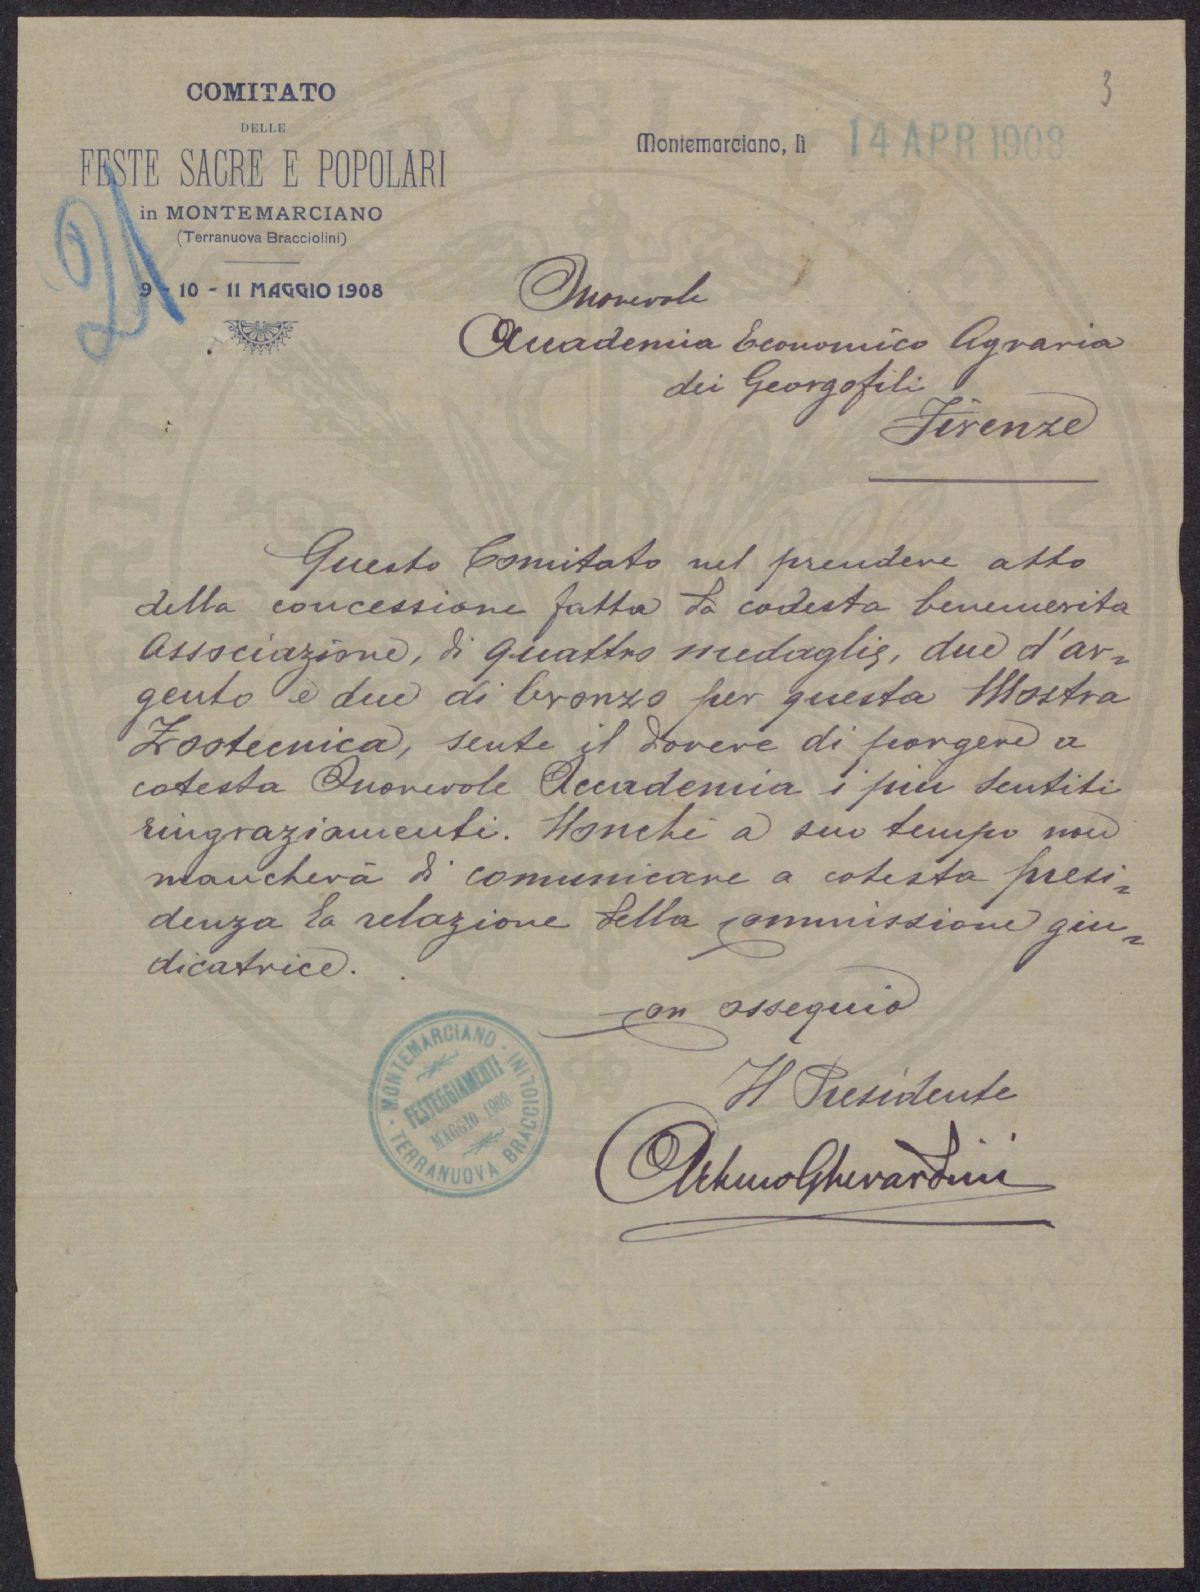 3
COMITATO
DELLE
FESTE SACRE E POPOLARI
in MONTEMARCIANO
(Terranuova Bracciolini)
9 - 10 - 11 MAGGIO 1908
21
Montemarciano, lì 14 APR 1908.
Onorevole
Accademia Economico Agraria
dei Georgofili
Firenze
Questo Comitato nel prendere atto
della concessione fatta da codesta benemerita
Associazione, di quattro medaglie, due d'ar=
gento e due di bronzo per questa Mostra
Zootecnica, sente il dovere di porgere a
cotesta Onorevole Accademia i più sentiti
ringraziamenti. Nonchè a suo tempo non
mancherà di comunicare a cotesta presi=
denza la relazione della commissione giu=
dicatrice.
con ossequio
Il Presidente
Arturo Gherardini
MONTEMARCIANO - TERRANUOVA BRACCIOLINI
FESTEGGIAMENTI
MAGGIO 1908